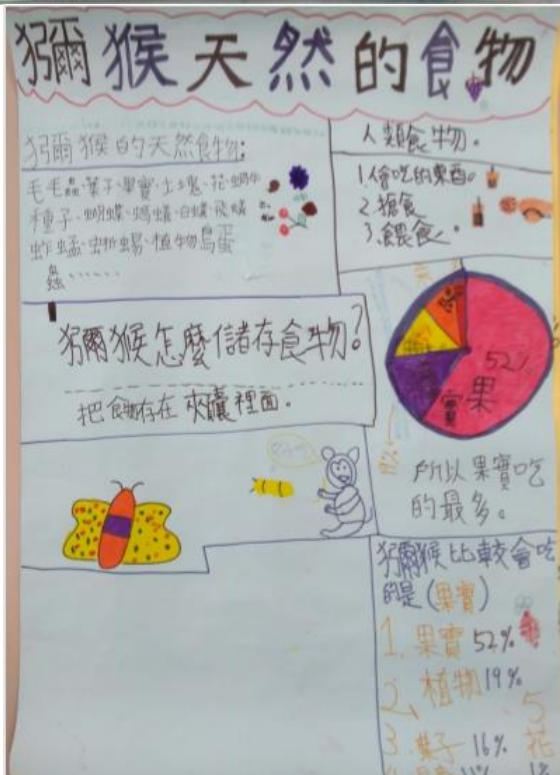 獼猴天然的食物
獼猴的天然食物:
毛毛蟲、葉子、果實、土塊、花、蝸牛
種子、蝴蝶、螞蟻、白蟻、飛蟻
蚱蜢、蜥蜴、植物鳥蛋
蟲、……
人類食物。
1.會吃的東西。
2.搶食
3.餵食。
獼猴怎麼儲存食物?
把食物存在 夾囊裡面。
52%
果
實
所以果實吃
的最多。
獼猴比較會吃
的是(果實)
1. 果實 52%
2. 植物 19%
3. 葉子 16%
5
花